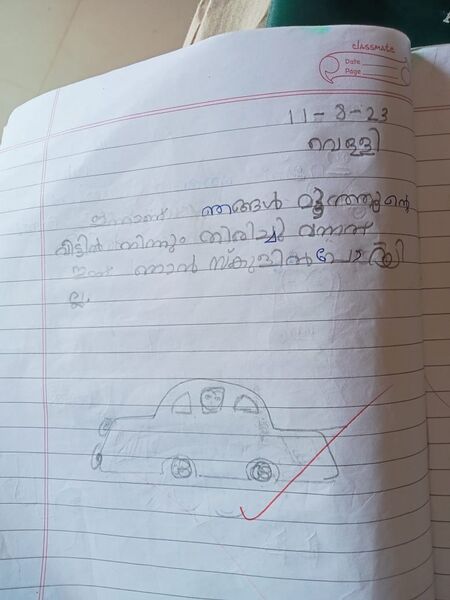 classmate
Date
Page
11-8-23
വെള്ളി
ഇന്നാണ് ഞങ്ങൾ
വീട്ടിൽ നിന്നും തിരിച്ചു വന്നത്
ഇന്ന് ഞാൻ സ്കൂളിൽ പോയി
ല്ല.